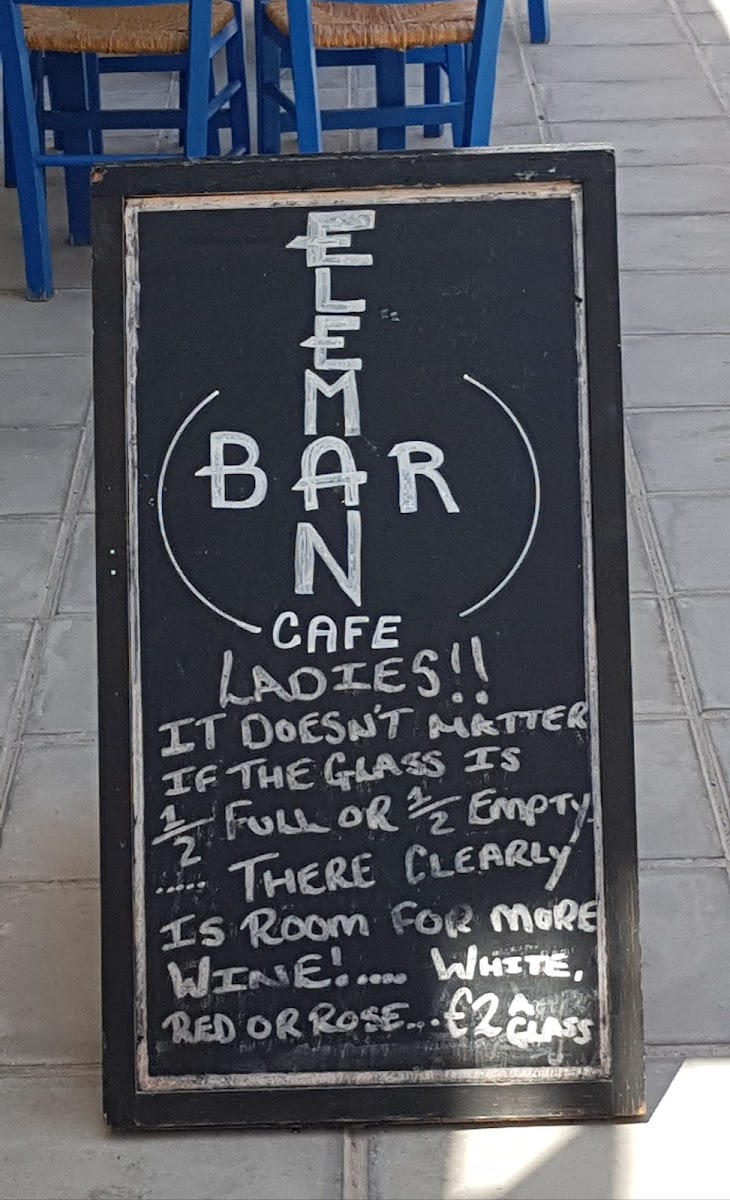 ELEMAN
BAR
CAFE
LADIES!!
IT DOESN'T MATTER
IF THE GLASS IS
1/2 FULL OR 1/2 EMPTY.
..... THERE CLEARLY
IS ROOM FOR MORE
WINE!.... WHITE,
RED OR ROSE... £2 A GLASS